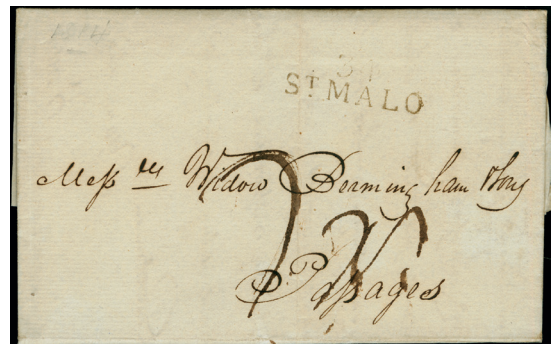 1814
34
ST MALO
Messrs Widow Bermingham & Sons
Passages